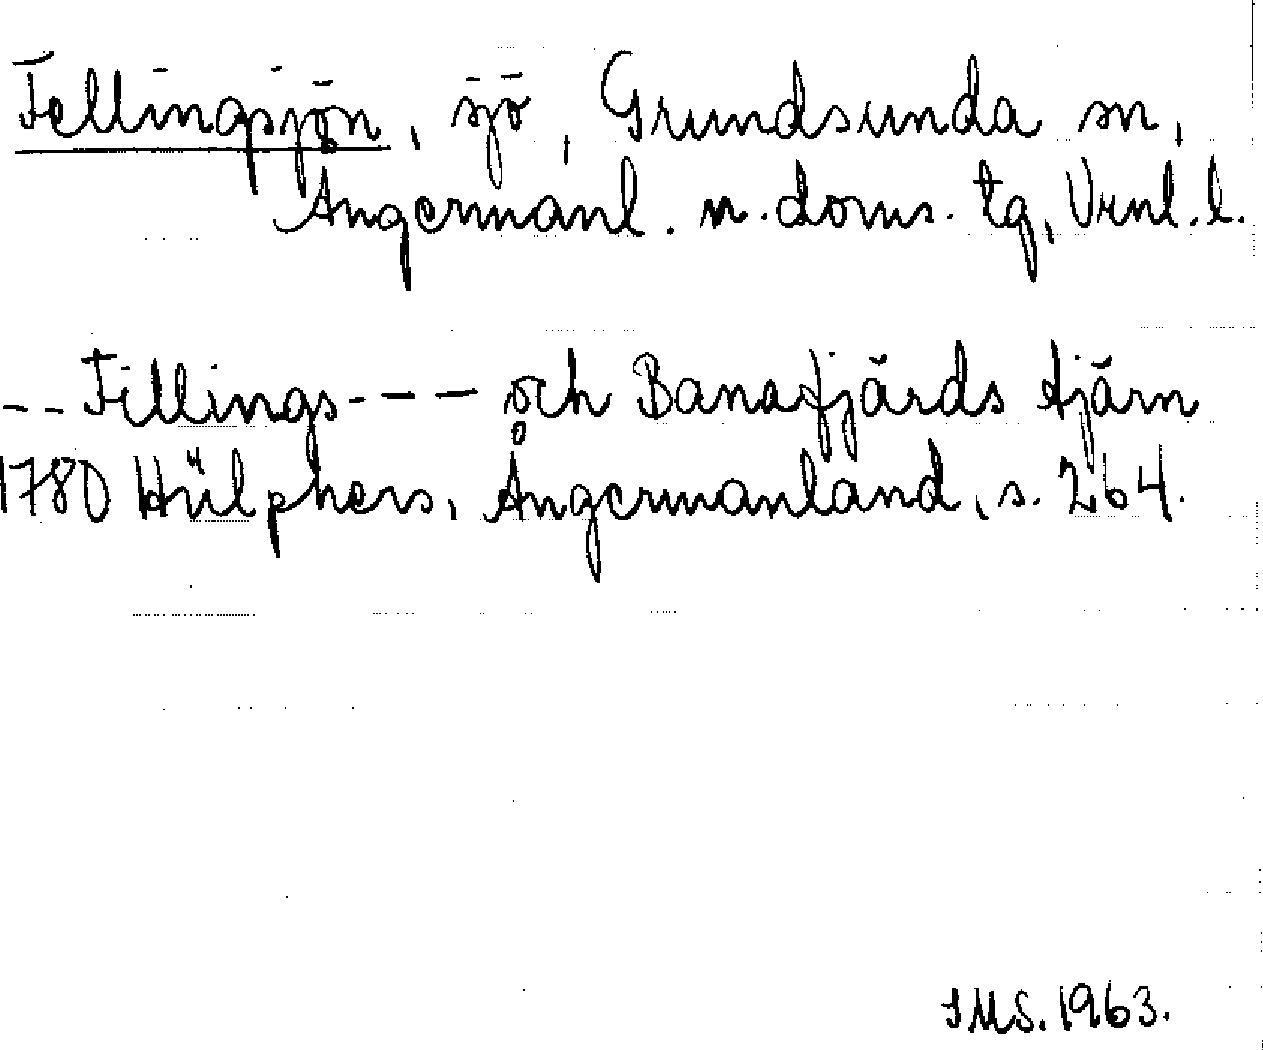 Fellingsjön, sjö, Grundsunda sn,
Ångermanl. n. doms. tg, Vrnl. l.
-- Fillings --- och Banafjärds tjärn
1780 Hülphers, Ångermanland, s. 264.
IMS. 1963.